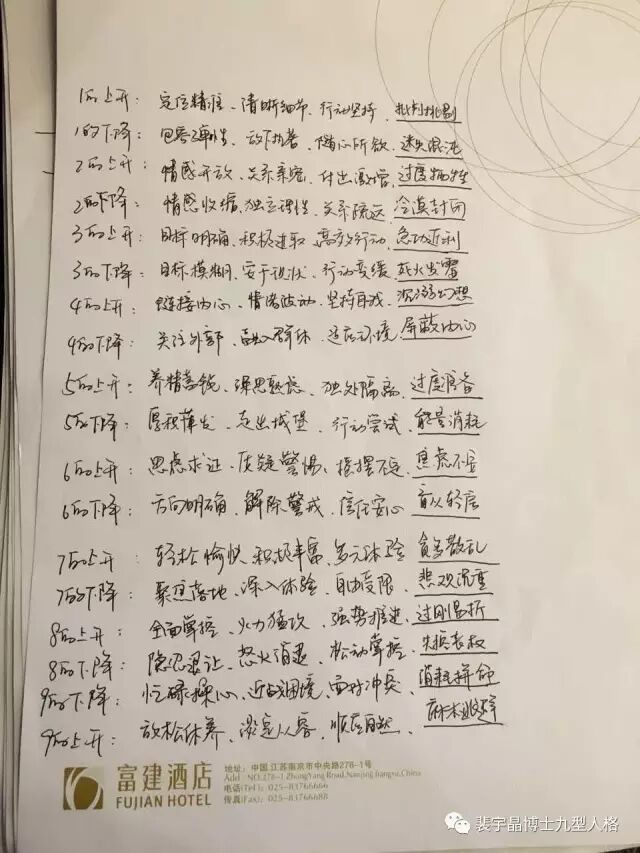 1的上升：定位精准、清晰细节、行动坚持、批判挑剔
1的下降：包容弹性、放下执著、随心所欲、迷失混沌
2的上升：情感开放、关系亲密、付出激增、过度牺牲
2的下降：情感收缩、独立理性、关系疏远、冷漠封闭
3的上升：目标明确、积极进取、高效行动、急功近利
3的下降：目标模糊、安于现状、行动变缓、死火
4的上升：链接内心、情绪波动、坚持自我、沉溺幻想
4的下降：关注外部、融入群体、适应环境、屏蔽内心
5的上升：养精蓄锐、深思熟虑、独处隔离、过度准备
5的下降：厚积薄发、走出城堡、行动尝试、能量消耗
6的上升：思虑求证、质疑警惕、摇摆不定、焦虑不安
6的下降：方向明确、解除警戒、信任安心、盲从轻信
7的上升：轻松愉快、积极丰富、多元体验、贪多散乱
7的下降：聚焦落地、深入体验、自由受限、悲观沉重
8的上升：全面掌控、火力猛攻、强势推进、过刚易折
8的下降：隐忍退让、怒火消退、松动掌控、失控丧权
9的下降：忙碌操心、近战困境、面对冲突、消耗拼命
9的上升：放松休养、淡定从容、顺应自然、麻木逃避
富建酒店
FUJIAN HOTEL
地址：中国.江苏南京市中央路278-1号
Add: NO.278-1 ZhongYang Road,Nanjing Jiangsu,China
电话(Tel)：025-83766666
传真(Fax)：025-83766688
裴宇晶博士九型人格